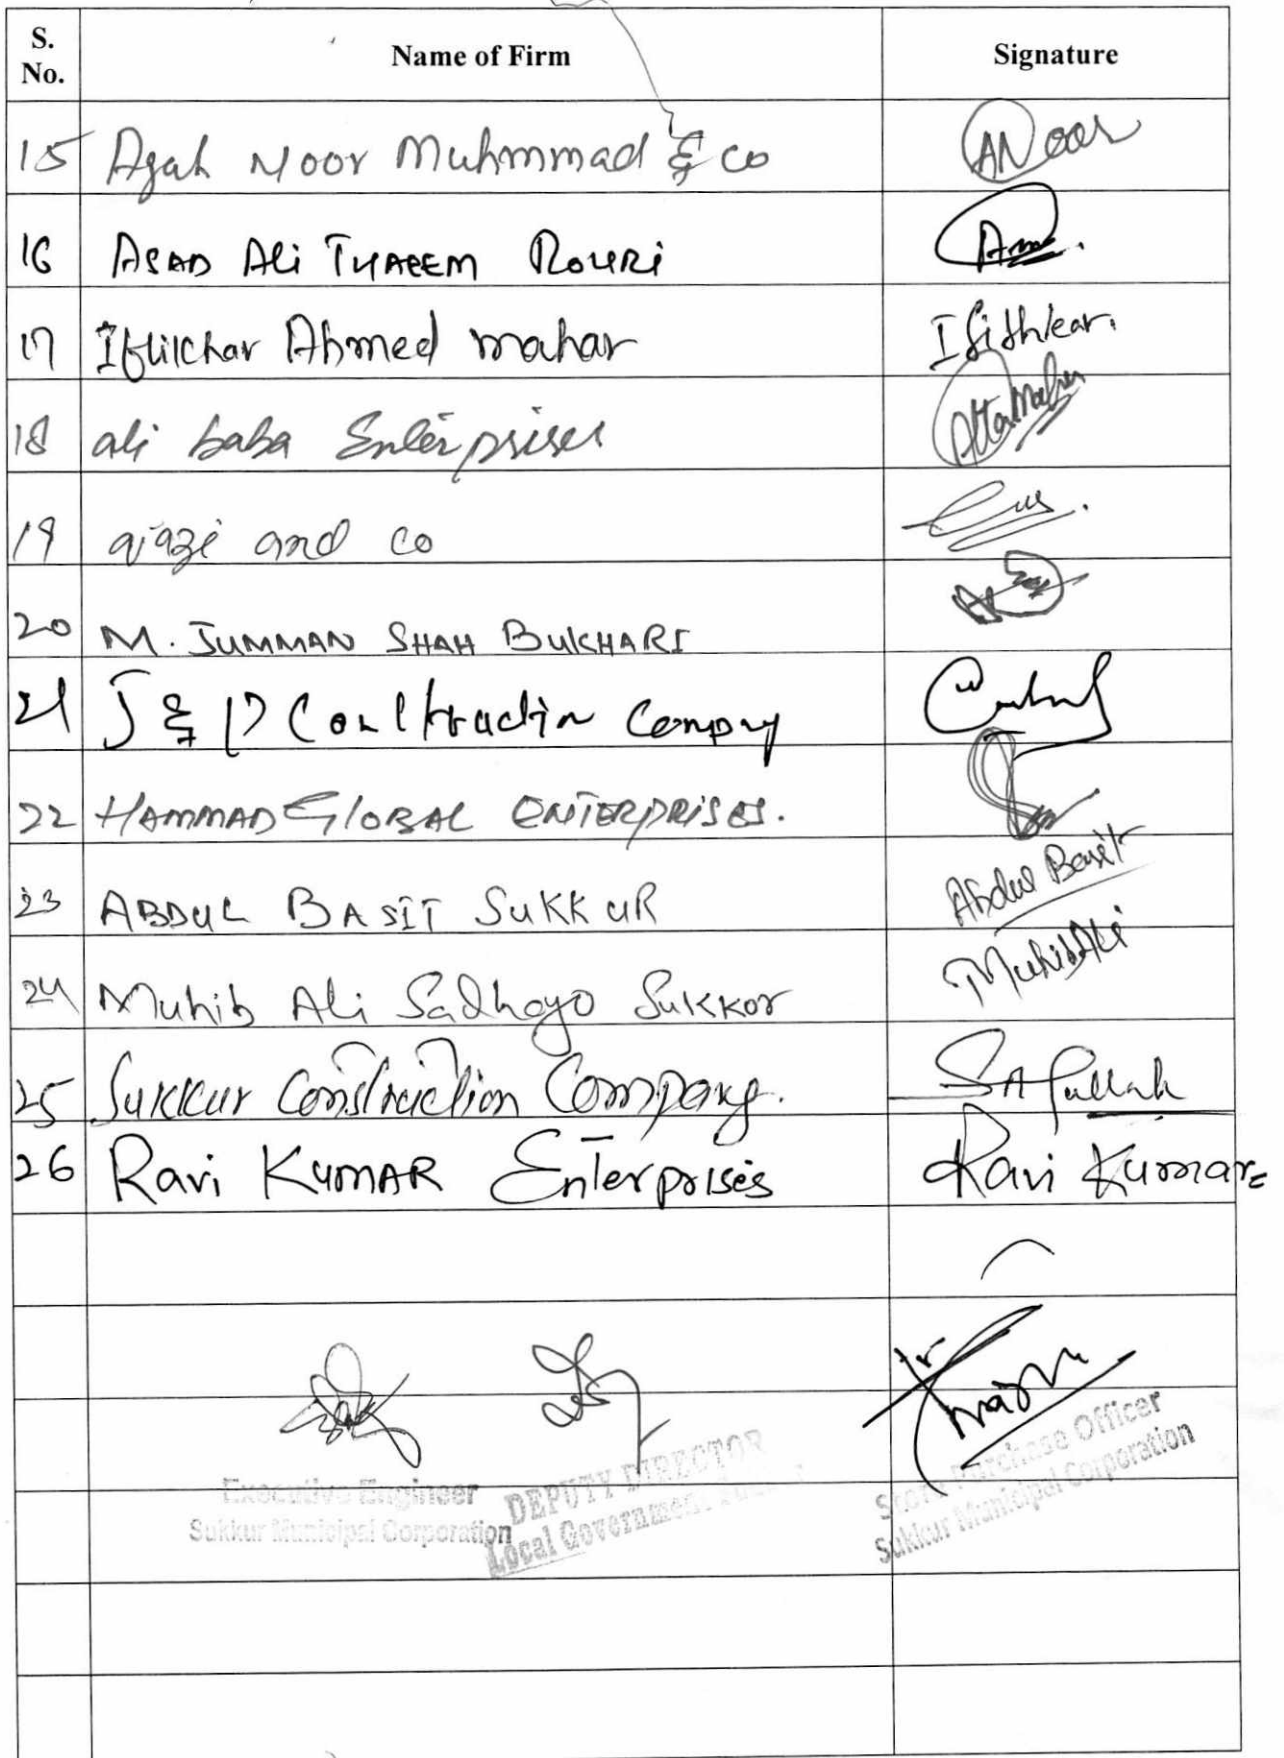 S. No. Name of Firm Signature
15 Agah Noor Muhmmad & co ANoor
16 ASAD Ali THAEEM ROHRi
17 Iftikhar Ahmed mahar Ifithkar.
18 ali baba Enterprises
19 and co
20 M. JUMMAN SHAH BUKHARI
21 J & Company
22 HAMMAD GLOBAL ENTERPRISES.
23 ABDUL BASIT SUKKUR Abdul Basit
24 Muhib Ali Sadhayo Sukkor Muhib Ali
25 Sukkur Construction Company. Safullah
26 Ravi KUMAR Enterprises Ravi Kumar
Executive Engineer
Sukkur Municipal Corporation
DEPUTY DIRECTOR
Local Government
Store Purchase Officer
Sukkur Municipal Corporation